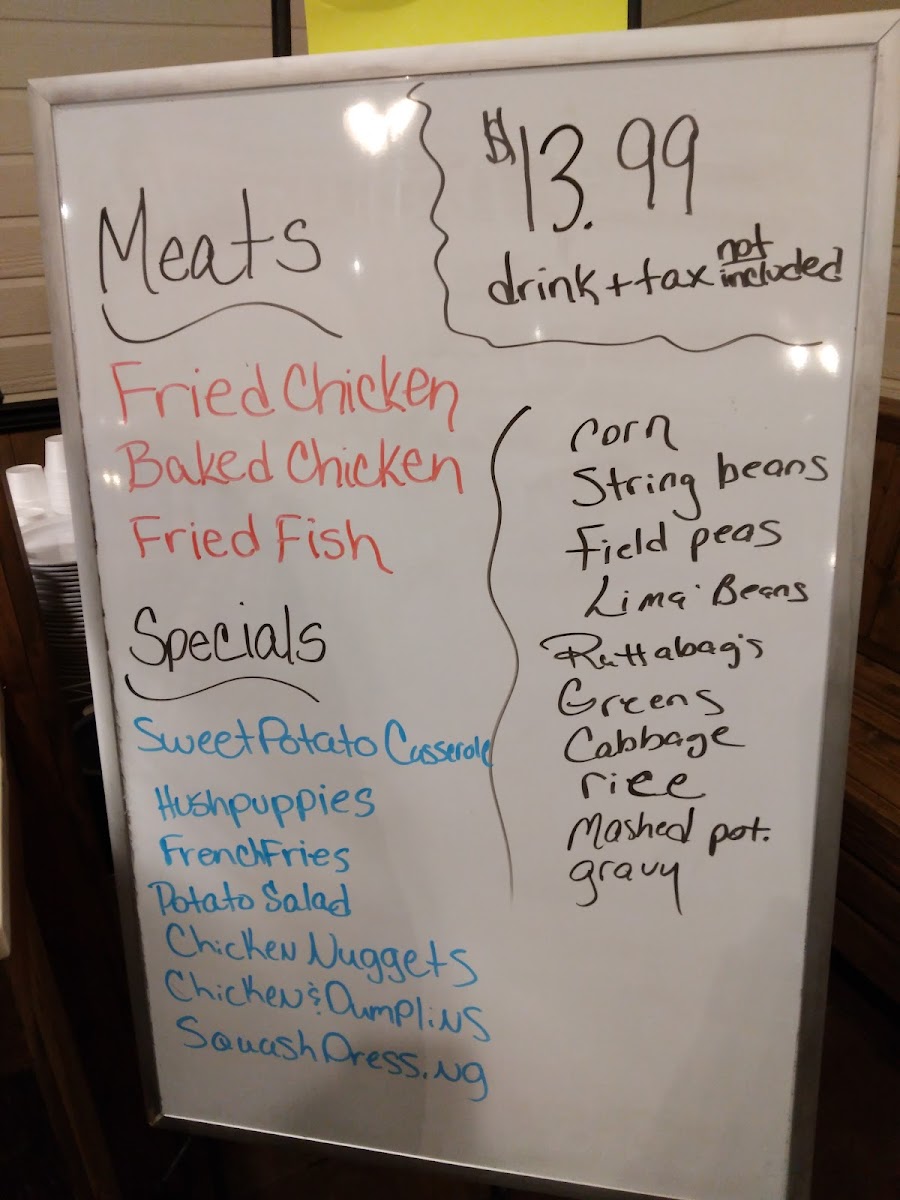 $13.99
drink + tax not included
Meats
Fried Chicken
Baked Chicken
Fried Fish
Specials
Sweet Potato Casserole
Hushpuppies
French Fries
Potato Salad
Chicken Nuggets
Chicken & Dumplins
Squash Dressing
corn
String beans
Field peas
Lima Beans
Ruttabag's
Greens
Cabbage
rice
Mashed pot.
gravy